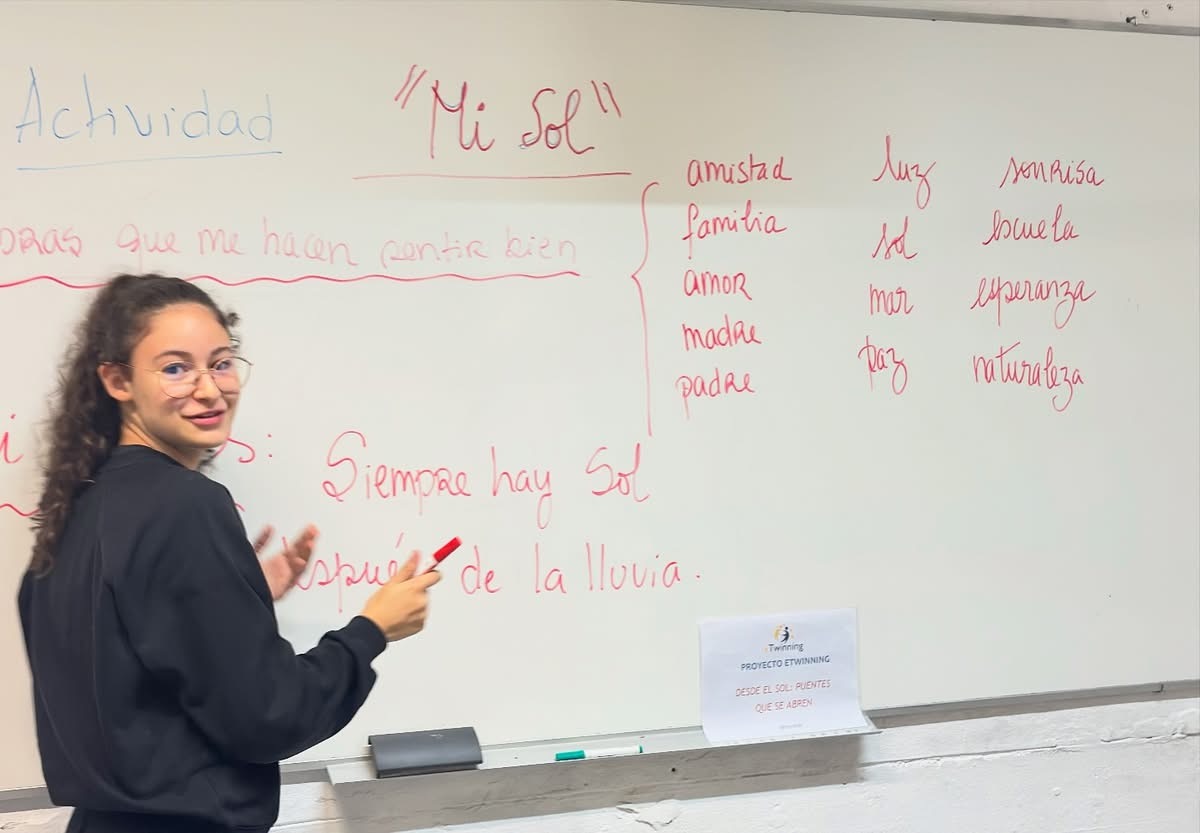 Actividad "Mi Sol"
que me hacen sentir bien
amistad luz sonrisa
familia sol escuela
amor mar esperanza
madre paz naturaleza
padre
Siempre hay Sol
después de la lluvia.
eTwinning
PROYECTO ETWINNING
DESDE EL SOL: PUENTES
QUE SE ABREN